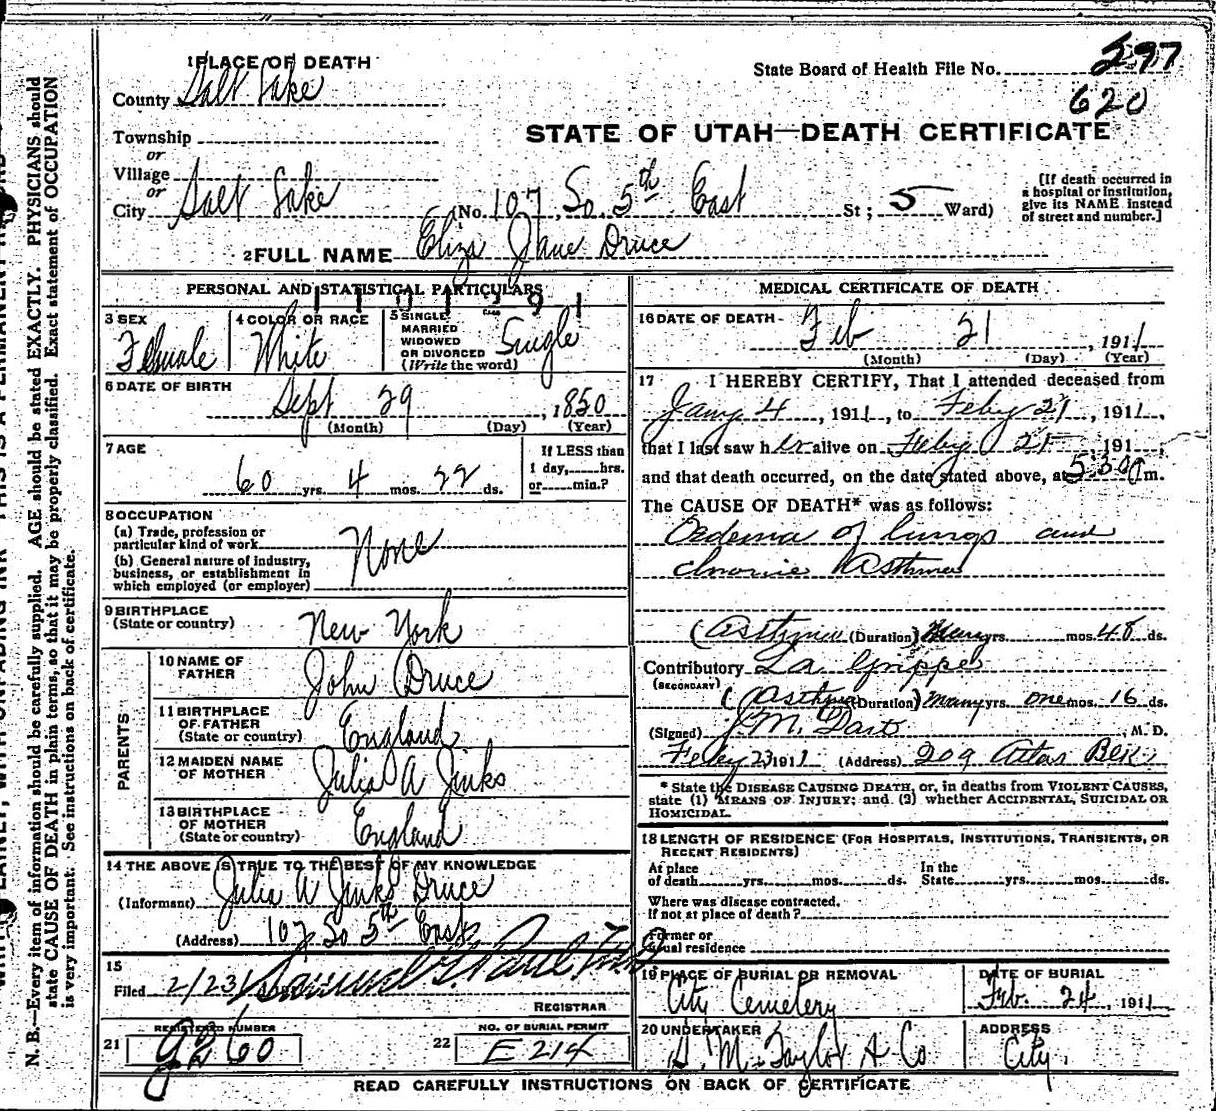 1 PLACE OF DEATH
County Salt Lake
State Board of Health File No. 297
620
Township
or
Village
or
City Salt Lake (No. 107 So. 5th East St; 5 Ward)
STATE OF UTAH—DEATH CERTIFICATE
[If death occurred in
a hospital or institution,
give its NAME instead
of street and number.]
2 FULL NAME Eliza Jane Druce
PERSONAL AND STATISTICAL PARTICULARS
3 SEX
Female
4 COLOR OR RACE
White
5 SINGLE
MARRIED
WIDOWED
OR DIVORCED
(Write the word)
Single
6 DATE OF BIRTH
Sept 29, 1850
(Month) (Day) (Year)
7 AGE
60 yrs. 4 mos. 22 ds.
If LESS than
1 day, hrs.
or min.?
8 OCCUPATION
(a) Trade, profession or
particular kind of work
(b) General nature of industry,
business, or establishment in
which employed (or employer)
None
9 BIRTHPLACE
(State or country)
New York
PARENTS
10 NAME OF
FATHER
John Druce
11 BIRTHPLACE
OF FATHER
(State or country)
England
12 MAIDEN NAME
OF MOTHER
Julia A Jinks
13 BIRTHPLACE
OF MOTHER
(State or country)
England
14 THE ABOVE IS TRUE TO THE BEST OF MY KNOWLEDGE
(Informant) Julia A Jinks Druce
(Address) 107 So 5th East
15
Filed 2/23
REGISTRAR
21 REGISTERED NUMBER
G2260
22 NO. OF BURIAL PERMIT
E 214
MEDICAL CERTIFICATE OF DEATH
16 DATE OF DEATH
Feb 21, 1911
(Month) (Day) (Year)
17 I HEREBY CERTIFY, That I attended deceased from
Jany 4, 1911, to Feby 21, 1911,
that I last saw her alive on Feby 21 191
and that death occurred, on the date stated above, at 5:30 m.
The CAUSE OF DEATH* was as follows:
Oedema of lungs and
chronic Asthma
(Asthma (Duration) Many yrs. mos. 48 ds.
Contributory La Grippe
(SECONDARY)
(Asthma (Duration) Many yrs. one mos. 16 ds.
(Signed) J. M. Dart, M. D.
Feby 23 1911 (Address) 209 Atlas Blk
* State the DISEASE CAUSING DEATH, or, in deaths from VIOLENT CAUSES,
state (1) MEANS OF INJURY; and (2) whether ACCIDENTAL, SUICIDAL OR
HOMICIDAL.
18 LENGTH OF RESIDENCE (FOR HOSPITALS, INSTITUTIONS, TRANSIENTS, OR
RECENT RESIDENTS)
At place
of death yrs. mos. ds.
In the
State yrs. mos. ds.
Where was disease contracted.
If not at place of death?
Former or
usual residence
19 PLACE OF BURIAL OR REMOVAL
City Cemetery
DATE OF BURIAL
Feb. 24, 1911
20 UNDERTAKER
S. M. Taylor & Co
ADDRESS
City.
READ CAREFULLY INSTRUCTIONS ON BACK OF CERTIFICATE
N. B.—Every item of information should be carefully supplied. AGE should be stated EXACTLY. PHYSICIANS should
state CAUSE OF DEATH in plain terms, so that it may be properly classified. Exact statement of OCCUPATION
is very important. See instructions on back of certificate.